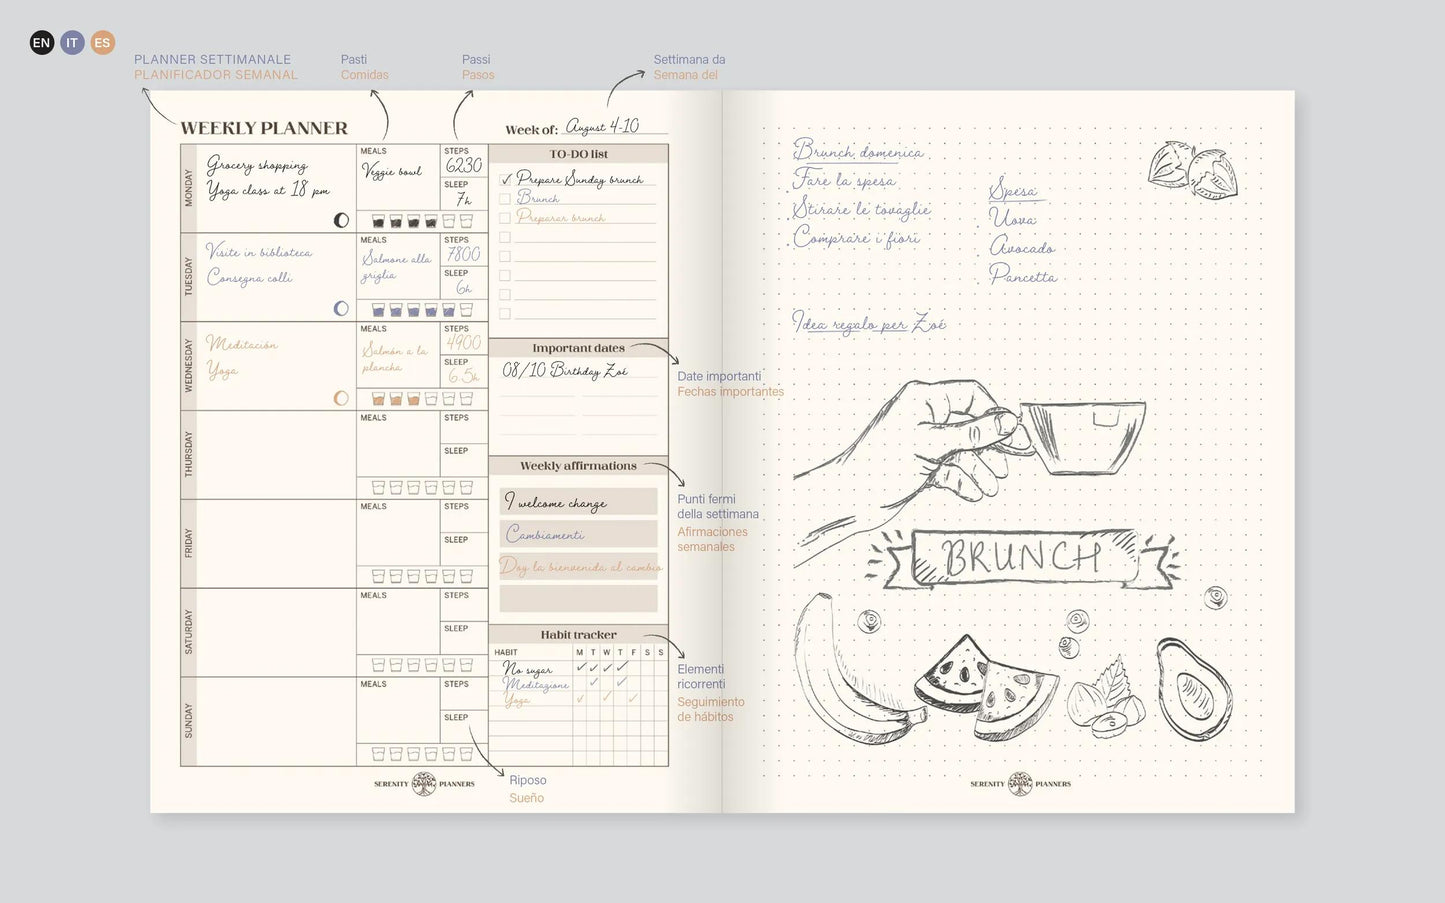 EN IT ES
PLANNER SETTIMANALE
PLANIFICADOR SEMANAL
Pasti
Comidas
Passi
Pasos
Settimana da
Semana del
WEEKLY PLANNER
Week of: August 4-10
MONDAY
Grocery shopping
Yoga class at 18 pm
MEALS
Veggie bowl
STEPS
6230
SLEEP
7h
TUESDAY
Visite in biblioteca
Consegna colli
MEALS
Salmone alla
griglia
STEPS
7800
SLEEP
6h
WEDNESDAY
Meditación
Yoga
MEALS
Salmón a la
plancha
STEPS
4900
SLEEP
6.5h
THURSDAY
MEALS
STEPS
SLEEP
FRIDAY
MEALS
STEPS
SLEEP
SATURDAY
MEALS
STEPS
SLEEP
SUNDAY
MEALS
STEPS
SLEEP
TO-DO list
Prepare Sunday brunch
Brunch
Preparar brunch
Important dates
08/10 Birthday Zoé
Date importanti
Fechas importantes
Weekly affirmations
I welcome change
Cambiamenti
Doy la bienvenida al cambio
Punti fermi
della settimana
Afirmaciones
semanales
Habit tracker
HABIT M T W T F S S
No sugar
Meditazione
Yoga
Elementi
ricorrenti
Seguimiento
de hábitos
Riposo
Sueño
SERENITY PLANNERS
Brunch domenica
Fare la spesa
Stirare le tovaglie
Comprare i fiori
Spesa
Uova
Avocado
Pancetta
Idea regalo per Zoé
BRUNCH
SERENITY PLANNERS